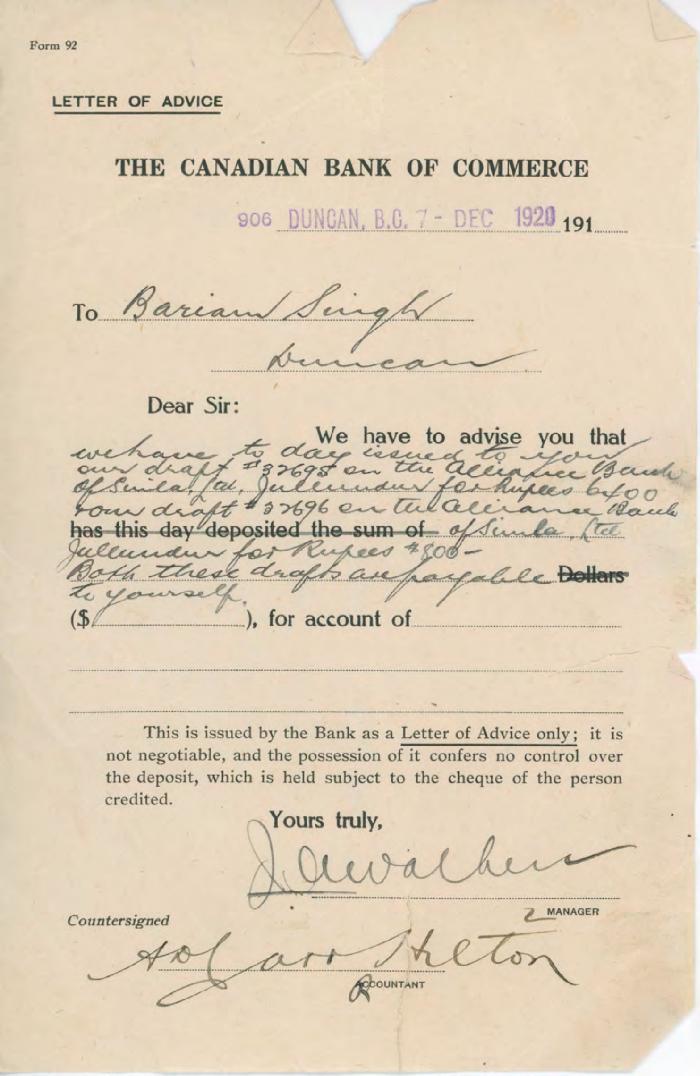 Form 92
LETTER OF ADVICE
THE CANADIAN BANK OF COMMERCE
906 DUNCAN, B.C. 7 - DEC 1920 191
To Bariam Singh
Duncan
Dear Sir:
We have to advise you that
we have to day issued to you
our draft #32695 on the Alliance Bank
of Simla, Ltd. Jullundur for Rupees 6400
our draft #32696 on the Alliance Bank
has this day deposited the sum of of Simla, Ltd
Jullundur for Rupees #800-
Both these drafts are payable Dollars
to yourself.
($ ), for account of
This is issued by the Bank as a Letter of Advice only; it is
not negotiable, and the possession of it confers no control over
the deposit, which is held subject to the cheque of the person
credited.
Yours truly,
MANAGER
Countersigned
Hilton
ACCOUNTANT